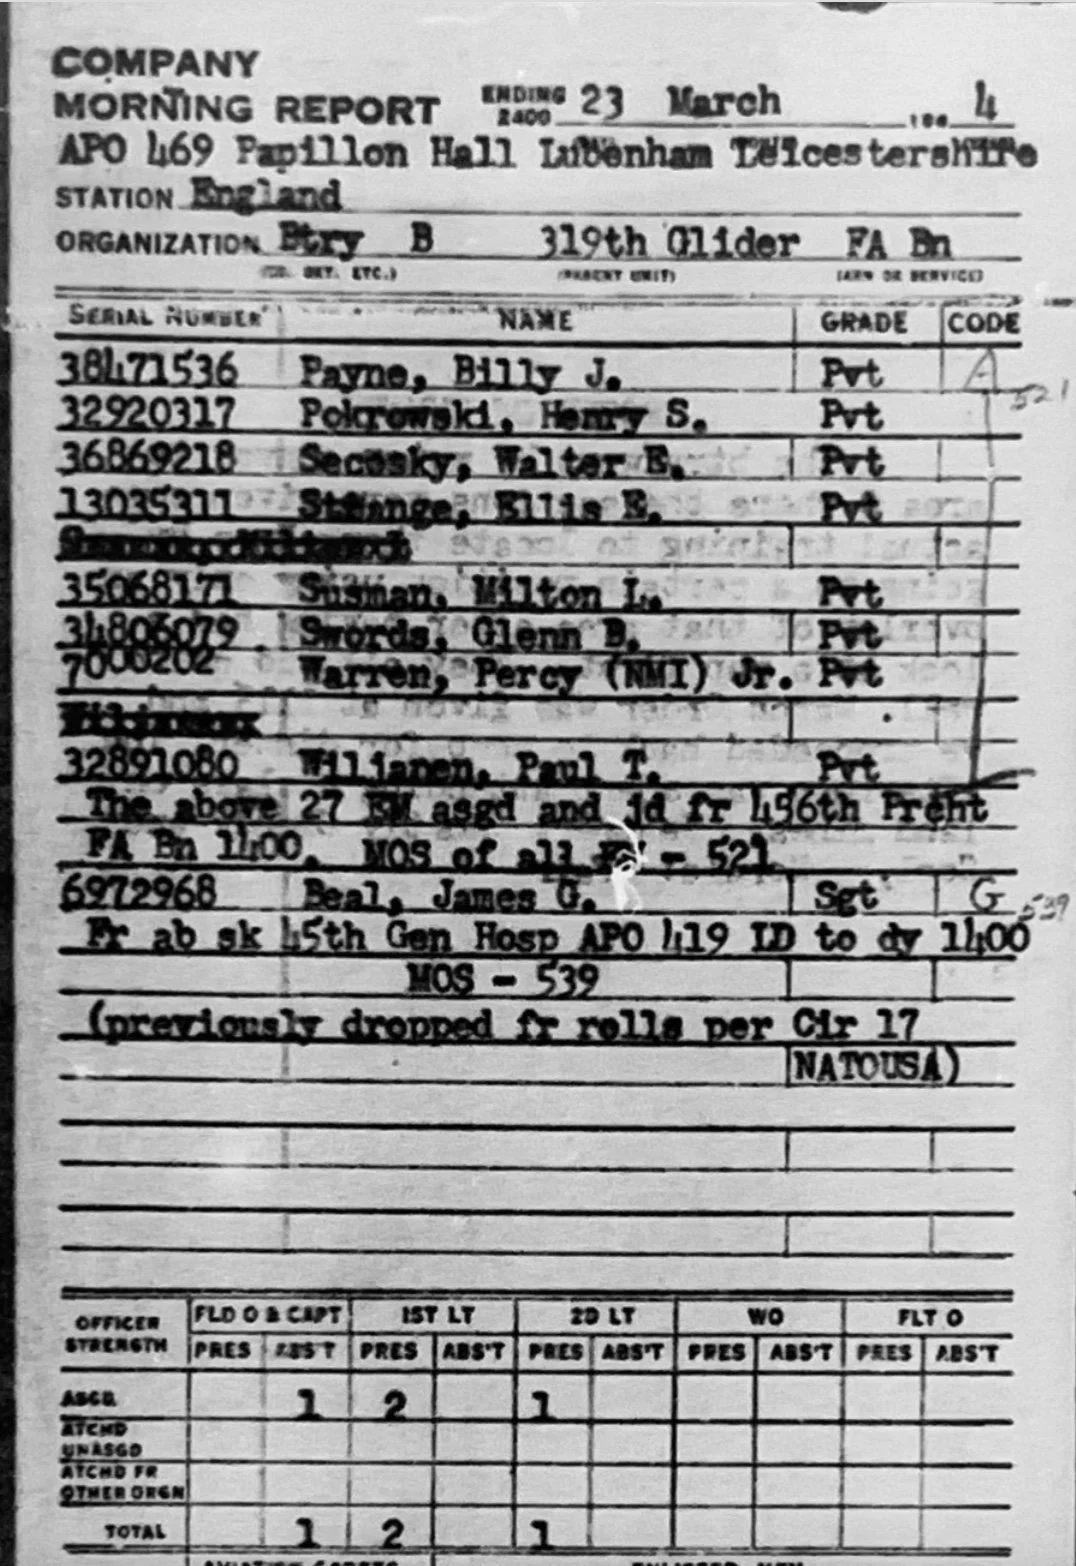 COMPANY
MORNING REPORT ENDING 2400 23 March 194 4
APO 469 Papillon Hall Lubenham Leicestershire
STATION England
ORGANIZATION Btry B 319th Glider FA Bn
(CO. DET. ETC.) (PARENT UNIT) (ARM OR SERVICE)
SERIAL NUMBER NAME GRADE CODE
38471536 Payne, Billy J. Pvt A 521
32920317 Pokrowski, Henry S. Pvt
36869218 Secosky, Walter E. Pvt
13035311 Strange, Ellis E. Pvt
35068171 Susman, Milton L. Pvt
34806079 Swords, Glenn B. Pvt
7000202 Warren, Percy (NMI) Jr. Pvt
32891080 Wiljanen, Paul T. Pvt
The above 27 EM asgd and jd fr 456th Prcht
FA Bn 1400. MOS of all - 521
6972968 Beal, James G. Sgt G 539
Fr ab sk 45th Gen Hosp APO 419 LD to dy 1400
MOS - 539
(previously dropped fr rolls per Cir 17
NATOUSA)
OFFICER STRENGTH FLD O & CAPT 1ST LT 2D LT WO FLT O
PRES ABS'T PRES ABS'T PRES ABS'T PRES ABS'T PRES ABS'T
ASGD 1 2 1
ATCHD UNASGD
ATCHD FR OTHER ORGN
TOTAL 1 2 1